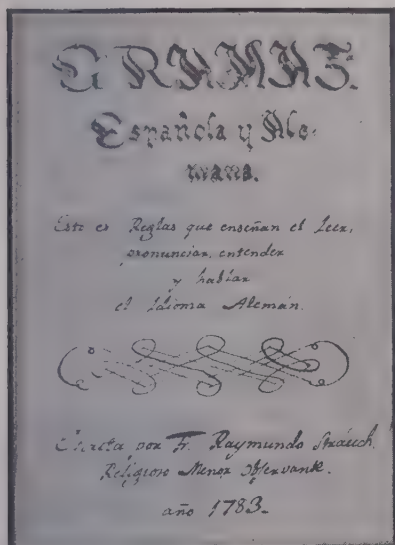 GRAMAT.
Española y Ale-
mana.
Esto es Reglas que enseñan el Leer,
pronunciar, entender
y hablar
el Idioma Alemán.
por Fr. Raymundo Stráuch.
Religioso Menor Observante.
año 1783.